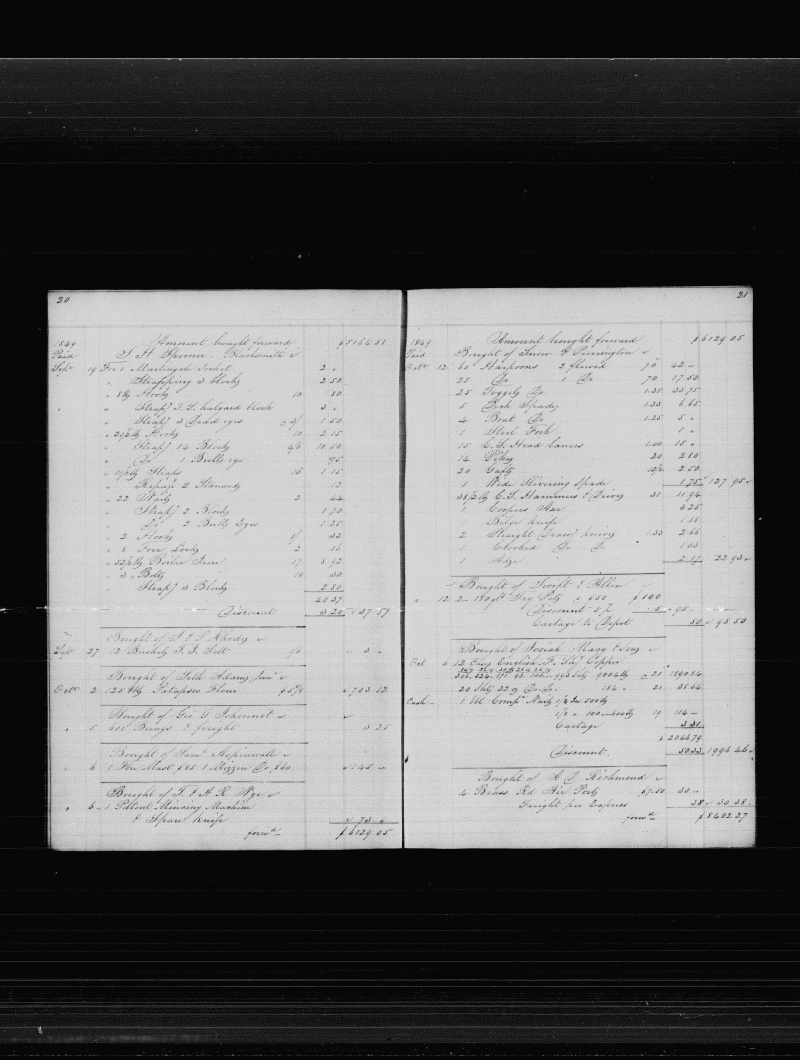 20
Amount brought forward $5164.51
1849
Paid S. H. Spooner. Blacksmith
Sept 19 For 1 Martingale Socket 2 "
" Strapping 3 blocks 2.50
" 8 lbs Hooks 10 80
" Strapg T. G. halyard block 3 "
" Strapg 3 Dead eyes 1.50
" 21½ lbs Hooks 10 2.15
" Strapg 14 Blocks 4/6 10.50
" Do 1 Bulls eye 75
" 11½ lbs Straps 10 1.15
" Repairg 2 Standards 12
" 22 Nails 2 44
" Strapg 2 Blocks 1.70
" Do 2 Bulls Eyes 1.25
" 2 Hooks 1/ 33
" 8 Fore Locks 2 16
" 52½ lbs Boiler Iron 17 8.92
" 3 " Bolts 10 30
" Strapg 3 Blocks 2.80
40.37
Discount 3.20 " 37.57
Bought of S. & S. Rhodes
Sept 27 12 Bushels T. I. Salt " 3 "
Bought of Seth Adams Junr
Octr 2 125 bbls Patapsco Flour $5⅞ " 743 12
Bought of Geo. G. Johonnot
" 5 600 Bungs & freight 3 25
Bought of Saml Aspinwall
" 6 1 Fore Mast $85 1 Mizzen Do $60 " 145 "
Bought of F. & A. R. Nye
" 6 1 Patent Mincing Machine
& Spare Knife " 73 "
forwd $6129 05
21
Amount brought forward $6129 05
1849
Paid Bought of Snow & Purrington
Octr 12 60 Harpoons 2 flued 70 42 "
25 Do 1 Do 70 17.50
25 Toggels Do 1.35 33.75
5 Fish Spades 1.33 6.65
4 Boat Do 1.25 5 "
1 Steel Fork 1 "
15 C. S. Head Lances 1.00 15 "
14 Pikes 20 2.80
20 Caps 12½ 2.50
1 Wide Slivering Spade 1.75 " 127 95
38½ lbs C. S. Hammers & Drivers 31 11.94
1 Coopers Axe 3.25
1 Bilge Knife 1.
2 Straight Drawg Knives 1.33 2.66
1 Crooked Do Do 1.33
1 Adze " 22.93
Bought of Swift & Allen
" 12 2 180 gls Try Pots a $50 $100
Discount 5 pr 5 " 95 "
Cartage to Depot 50 " 95 50
Bought of Josiah Macy & Sons
Oct 6 12 Cases English Sh Copper
9004 lbs a 21 1890.84
20 Shts 22 oz Do Do 184 " 21 38.64
Cash 1 bbl Compn Nails 1¼ In 500 lbs
1⅛ " 100 600 lbs 19 114 "
Cartage 3.31
$2046.79
Discount. 50.33 1996 46
Bought of A. D. Richmond
4 Brass Rd Air Ports $7.50 30 "
Freight per Express 38 " 30.38
forwd $8402 27